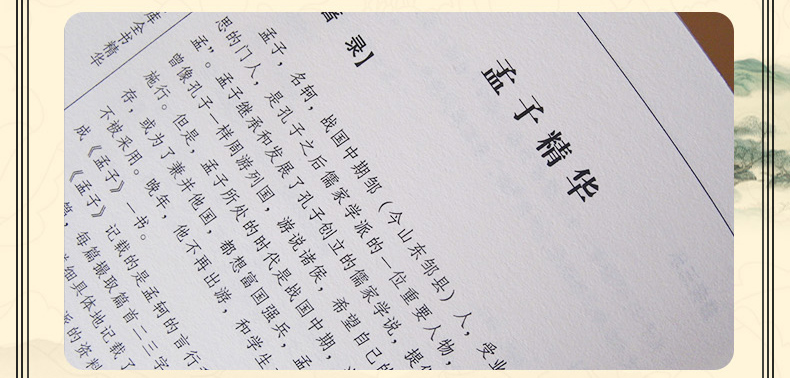 孟子精华
录】
孟子，名轲，战国中期邹（今山东邹县）人，受业
思的门人，是孔子之后儒家学派的一位重要人物，
孟”。孟子继承和发展了孔子创立的儒家学说，提
曾像孔子一样周游列国，游说诸侯，希望自己的
施行。但是，孟子所处的时代是战国中期，
存，或为了兼并他国，都想富国强兵，孟
不被采用。晚年，他不再出游，和学生
成《孟子》一书。
《孟子》记载的是孟轲的言行
篇，每篇撮取篇首二三字
细具体地记载了
派的资料
库全书精华